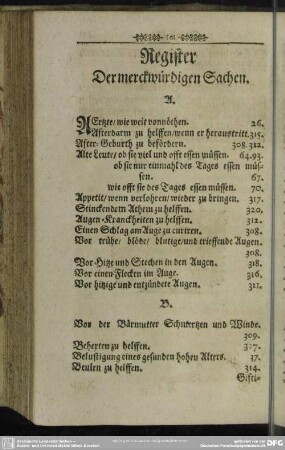 Register
Der merckwürdigen Sachen.
A.
AErtzte/ wie weit vonnöthen. 26.
Afterdarm zu helffen/ wenn er heraustritt. 315.
After-Geburth zu befördern. 308. 312.
Alte Leute/ ob sie viel und offt essen müssen. 64. 93.
ob sie nur einmahl des Tages essen müs-
sen. 67.
wie offt sie des Tages essen müssen. 70.
Appetit/ wenn verlohren/ wieder zu bringen. 317.
Stinckendem Athem zu helffen. 320.
Augen-Kranckheiten zu helffen. 312.
Einen Schlag am Auge zu curiren. 308.
Vor trübe/ blöde/ blutige/ und trieffende Augen.
308.
Vor Hitze und Stechen in den Augen. 318.
Vor einen Flecken im Auge. 316.
Vor hitzige und entzündete Augen. 321.
B.
Von der Bärmutter Schmertzen und Winde.
309.
Beherten zu helffen. 317.
Belustigung eines gesunden hohen Alters. 37.
Beulen zu helffen. 314.
Gifti-
DFG